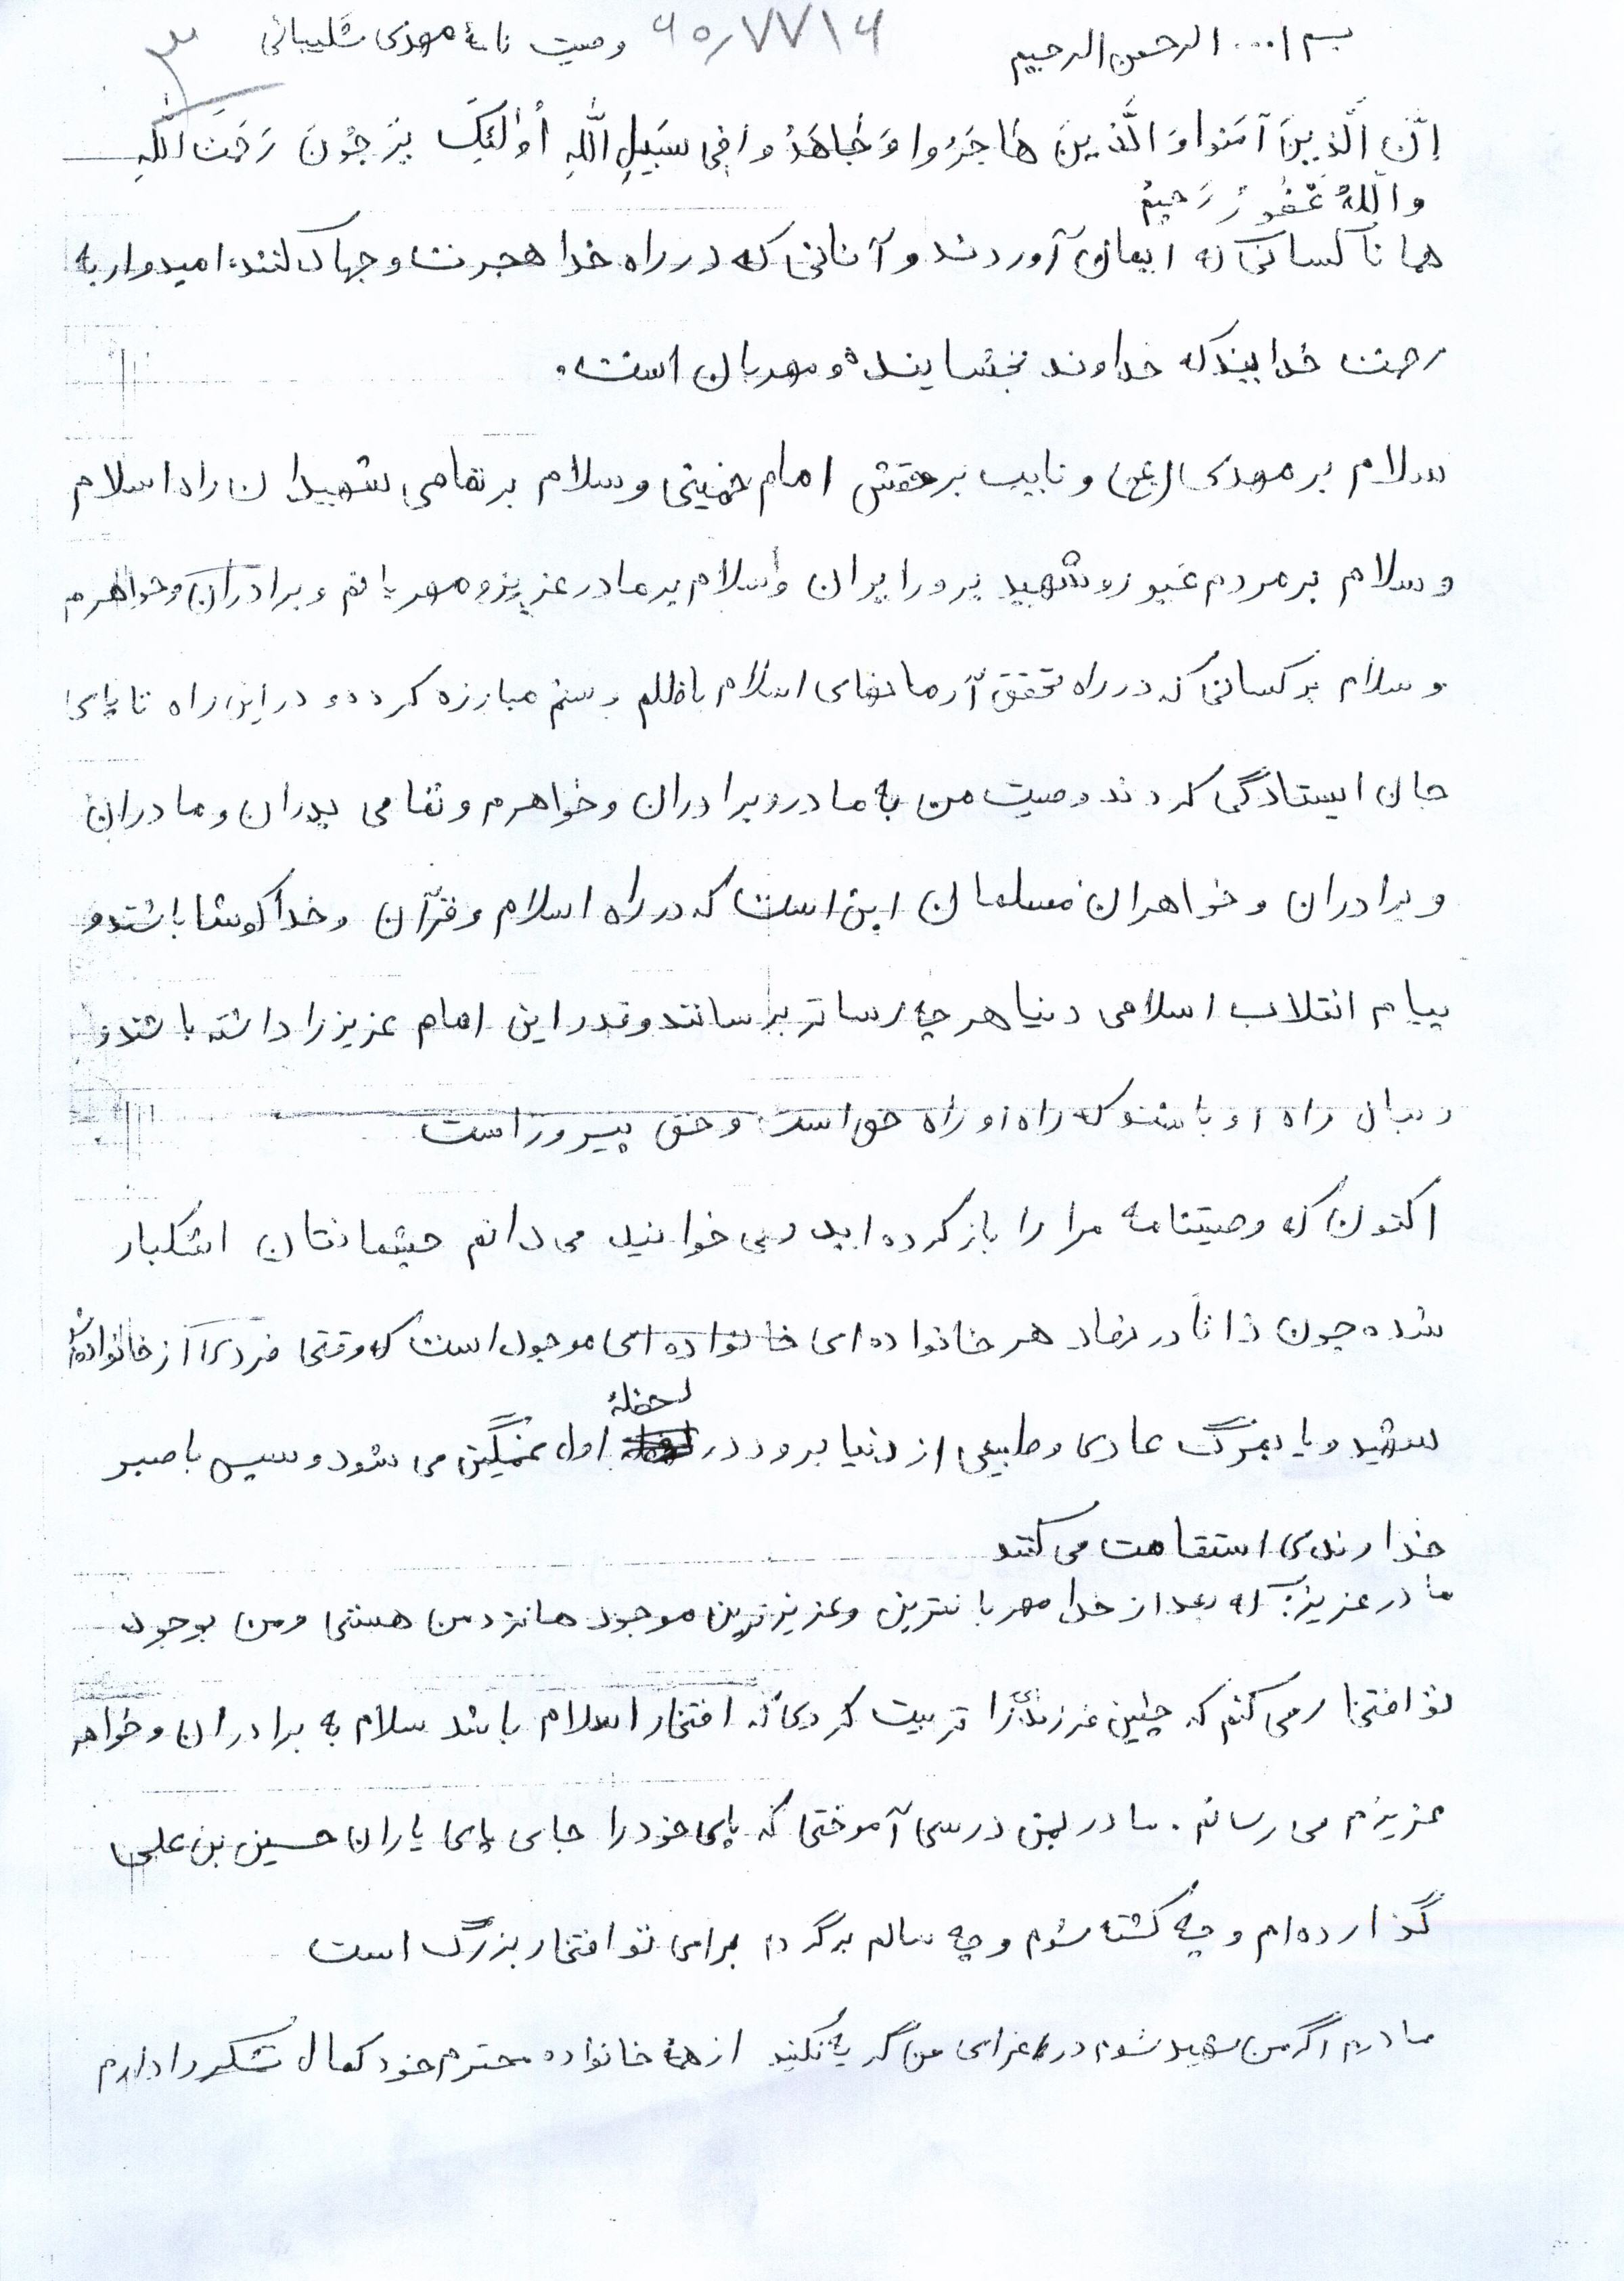 بسم ا... الرحمن الرحیم
وصیت نامۀ مهدی شکیبائی
۳
إنّ الَّذینَ آمَنوا وَ الَّذینَ هاجَرُوا وَ جاهَدُوا فِی سَبیلِ اللهِ أُولئِکَ یَرجُونَ رَحمَتَ اللهِ
واللهُ غَفُورٌ رَحیمٌ
همانا کسانی که ایمان آوردند و آنانی که در راه خدا هجرت و جهاد کنند، امیدوار به
رحمت خدایند که خداوند بخشاینده و مهربان است.
سلام بر مهدی (عج) و نایب برحقش امام خمینی و سلام بر تمامی شهیدان راه اسلام
و سلام بر مردم غیور و شهید پرور ایران و سلام بر مادر عزیز و مهربانم و برادران و خواهرم
و سلام بر کسانی که در راه تحقق آرمانهای اسلام با ظلم و ستم مبارزه کرده و در این راه تا پای
جان ایستادگی کردند وصیت من به مادر و برادران و خواهرم و تمامی پدران و مادران
و برادران و خواهران مسلمان این است که در راه اسلام و قرآن و خدا کوشا باشند و
پیام انقلاب اسلامی دنیا هر چه رساتر برسانند و قدر این امام عزیز را داشته باشند و
دنبال راه او باشند که راه او راه حق است و حق پیروز است
اکنون که وصیتنامه مرا را باز کرده اید و می خوانید می دانم چشمانتان اشکبار
شده چون ذاتا در نهاد هر خانواده ای خانواده ای موجود است که وقتی فردی از خانواده اش
شهید و یا بمرگ عادی و طبیعی از دنیا برود در لحظۀ اول غمگین می شود و سپس با صبر
خداوندی استقامت می کنند
مادر عزیز که بعد از خدا مهربانترین و عزیزترین موجود ها نزد من هستی و من بوجود
تو افتخار می کنم که چنین فرزندی را تربیت کردی که افتخار اسلام باشد سلام به برادران و خواهر
عزیزم می رسانم. مادر بمن درسی آموختی که پای خود را جای پای یاران حسین بن علی
گذارده ام و چه کشته شوم و چه سالم برگردم برای تو افتخار بزرگ است
مادرم اگر من شهید شوم در عزای من گریه نکنید از همۀ خانواده محترم خود کمال تشکر را دارم